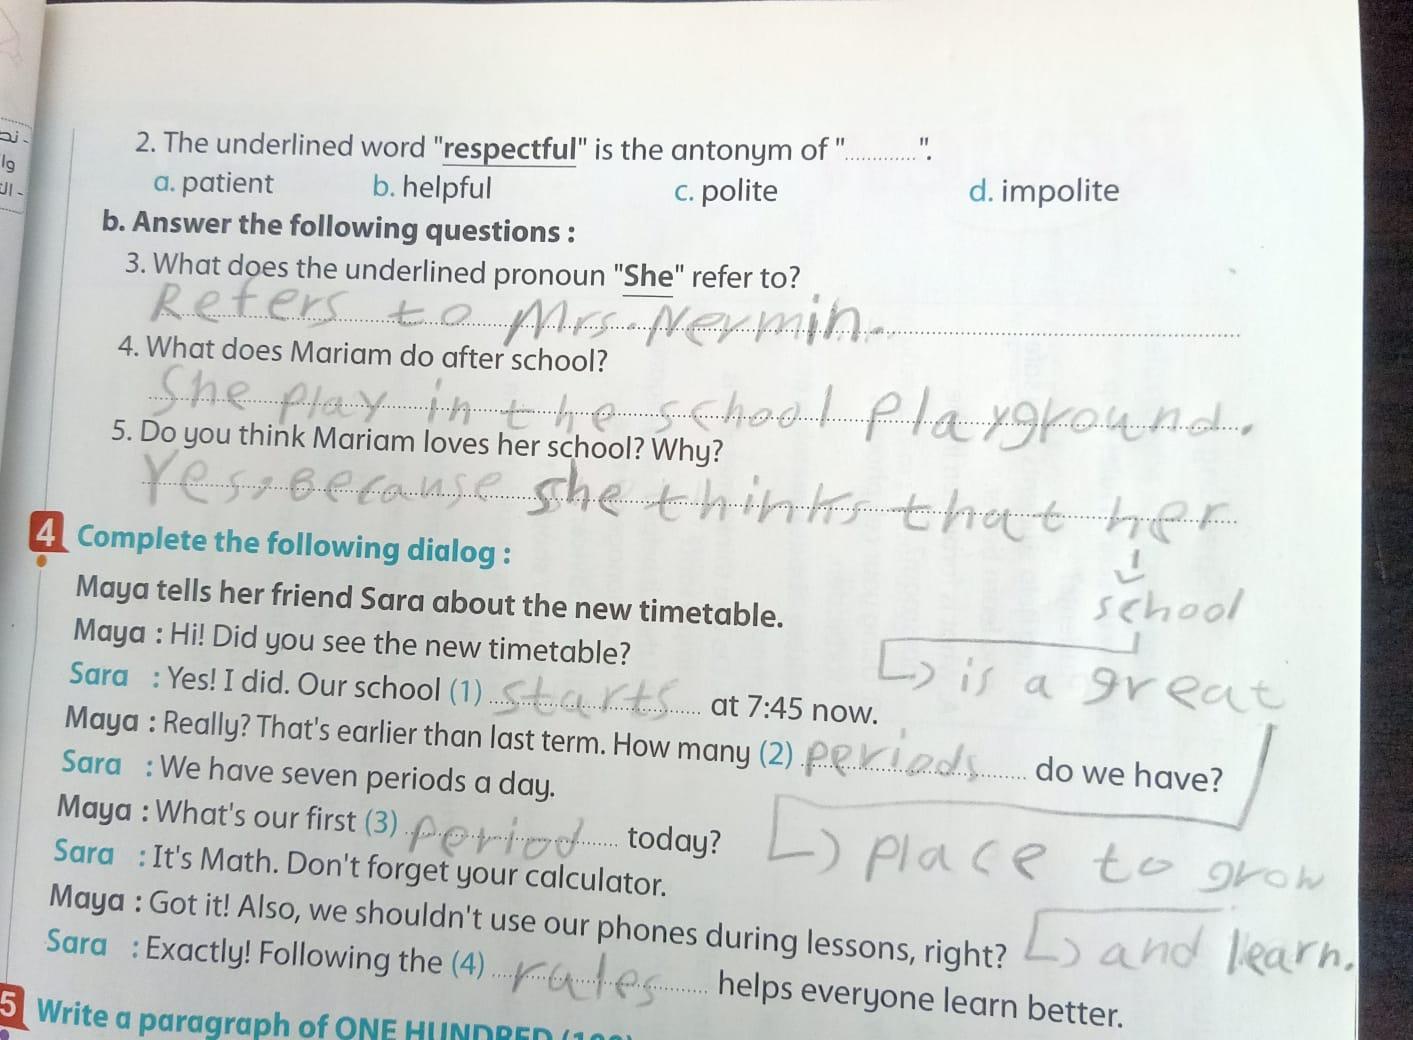 2. The underlined word "respectful" is the antonym of "............".
a. patient b. helpful c. polite d. impolite
b. Answer the following questions :
3. What does the underlined pronoun "She" refer to?
Refers to Mrs. Nermin.
4. What does Mariam do after school?
She play in the school playground.
5. Do you think Mariam loves her school? Why?
Yes, Because she thinks that her
school
is a great
place to grow
and learn.
4 Complete the following dialog :
Maya tells her friend Sara about the new timetable.
Maya : Hi! Did you see the new timetable?
Sara : Yes! I did. Our school (1) starts at 7:45 now.
Maya : Really? That's earlier than last term. How many (2) periods do we have?
Sara : We have seven periods a day.
Maya : What's our first (3) period today?
Sara : It's Math. Don't forget your calculator.
Maya : Got it! Also, we shouldn't use our phones during lessons, right?
Sara : Exactly! Following the (4) rules helps everyone learn better.
5 Write a paragraph of ONE HUNDRED